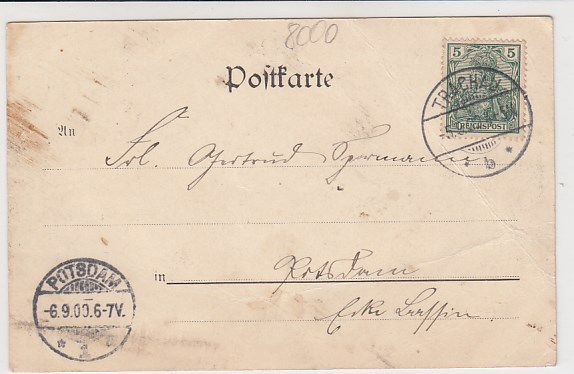 8000
5 5
Postkarte
REICHSPOST
TRACHAU
* b *
An
Frl. Gertrud Spermann
in Potsdam
Ecke
POTSDAM
-6.9.00.6-7V.
* 1